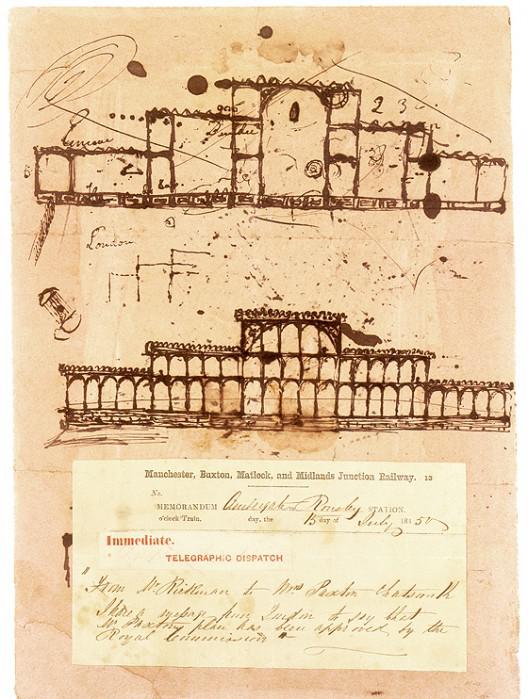 2 3
London
Manchester, Buxton, Matlock, and Midlands Junction Railway. 13
No.
MEMORANDUM Rowsley STATION.
o'clock Train. day, the 15 day of July 1850
Immediate.
TELEGRAPHIC DISPATCH
"From Mr to Mrs Paxton Chatsworth
I have a message from London to say that
Mr Paxtons plan has been approved by the
Royal Commission"